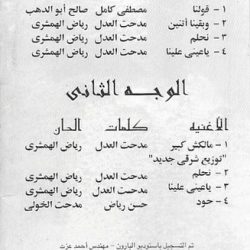 ١ - قولنا مصطفى كامل صالح أبو الدهب
٢ - وبقينا أتنين مدحت العدل رياض الهمشرى
٣ - نحلم مدحت العدل رياض الهمشرى
٤ - ياعينى علينا مدحت العدل رياض الهمشرى
الوجه الثانى
الأغنيه كلمات الحان
١ - مالكش كبير مدحت العدل رياض الهمشرى
"توزيع شرقى جديد"
٢ - نحلم مدحت العدل رياض الهمشرى
٣ - ياعينى علينا مدحت العدل رياض الهمشرى
٤ - حود حسن رياض مدحت الخولى
تم التسجيل باستوديو البارون - مهندس أحمد عزت